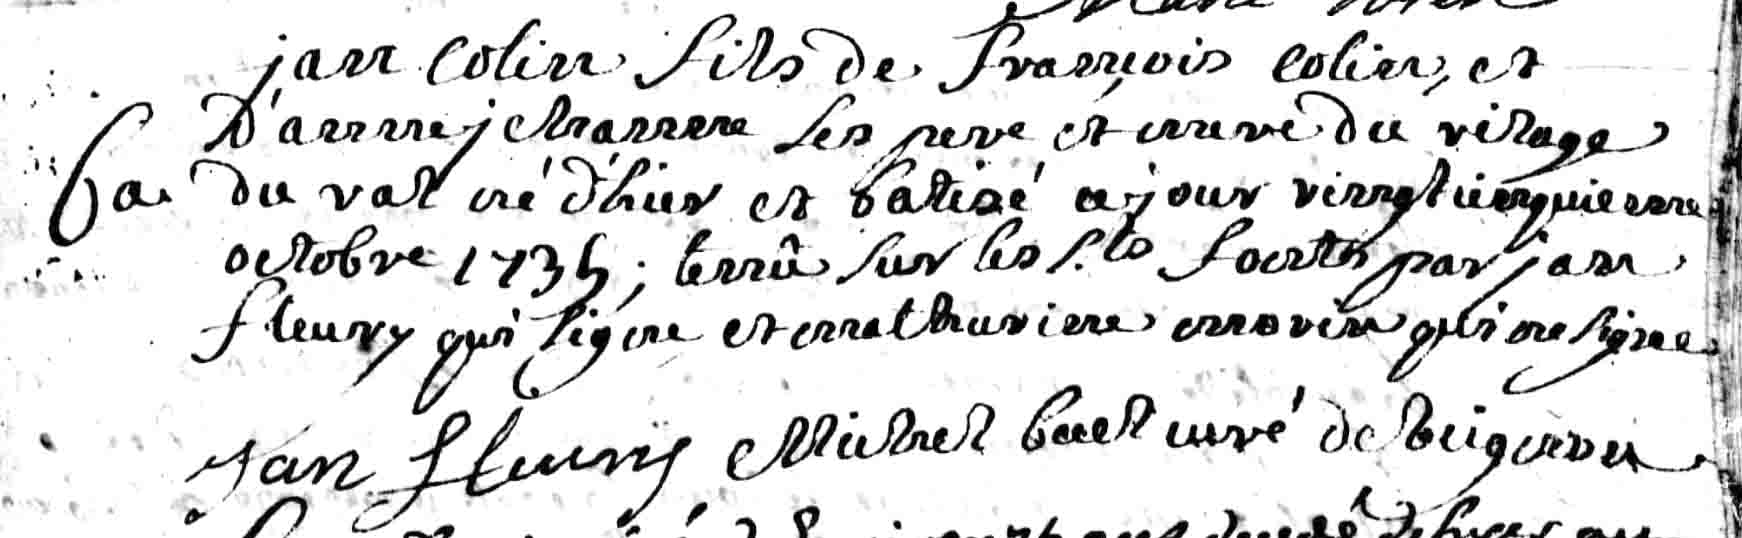 jan Colin fils de françois colin, et
D'anne jehanne ses pere et mere du vilage
ba. du val né d'hier et batisé ce jour vingtcinquieme
octobre 1735; tenû sur les s.ts fonts par jan
fleury qui signe et mathurine morin qui ne signe
jan fleury Michel curé de